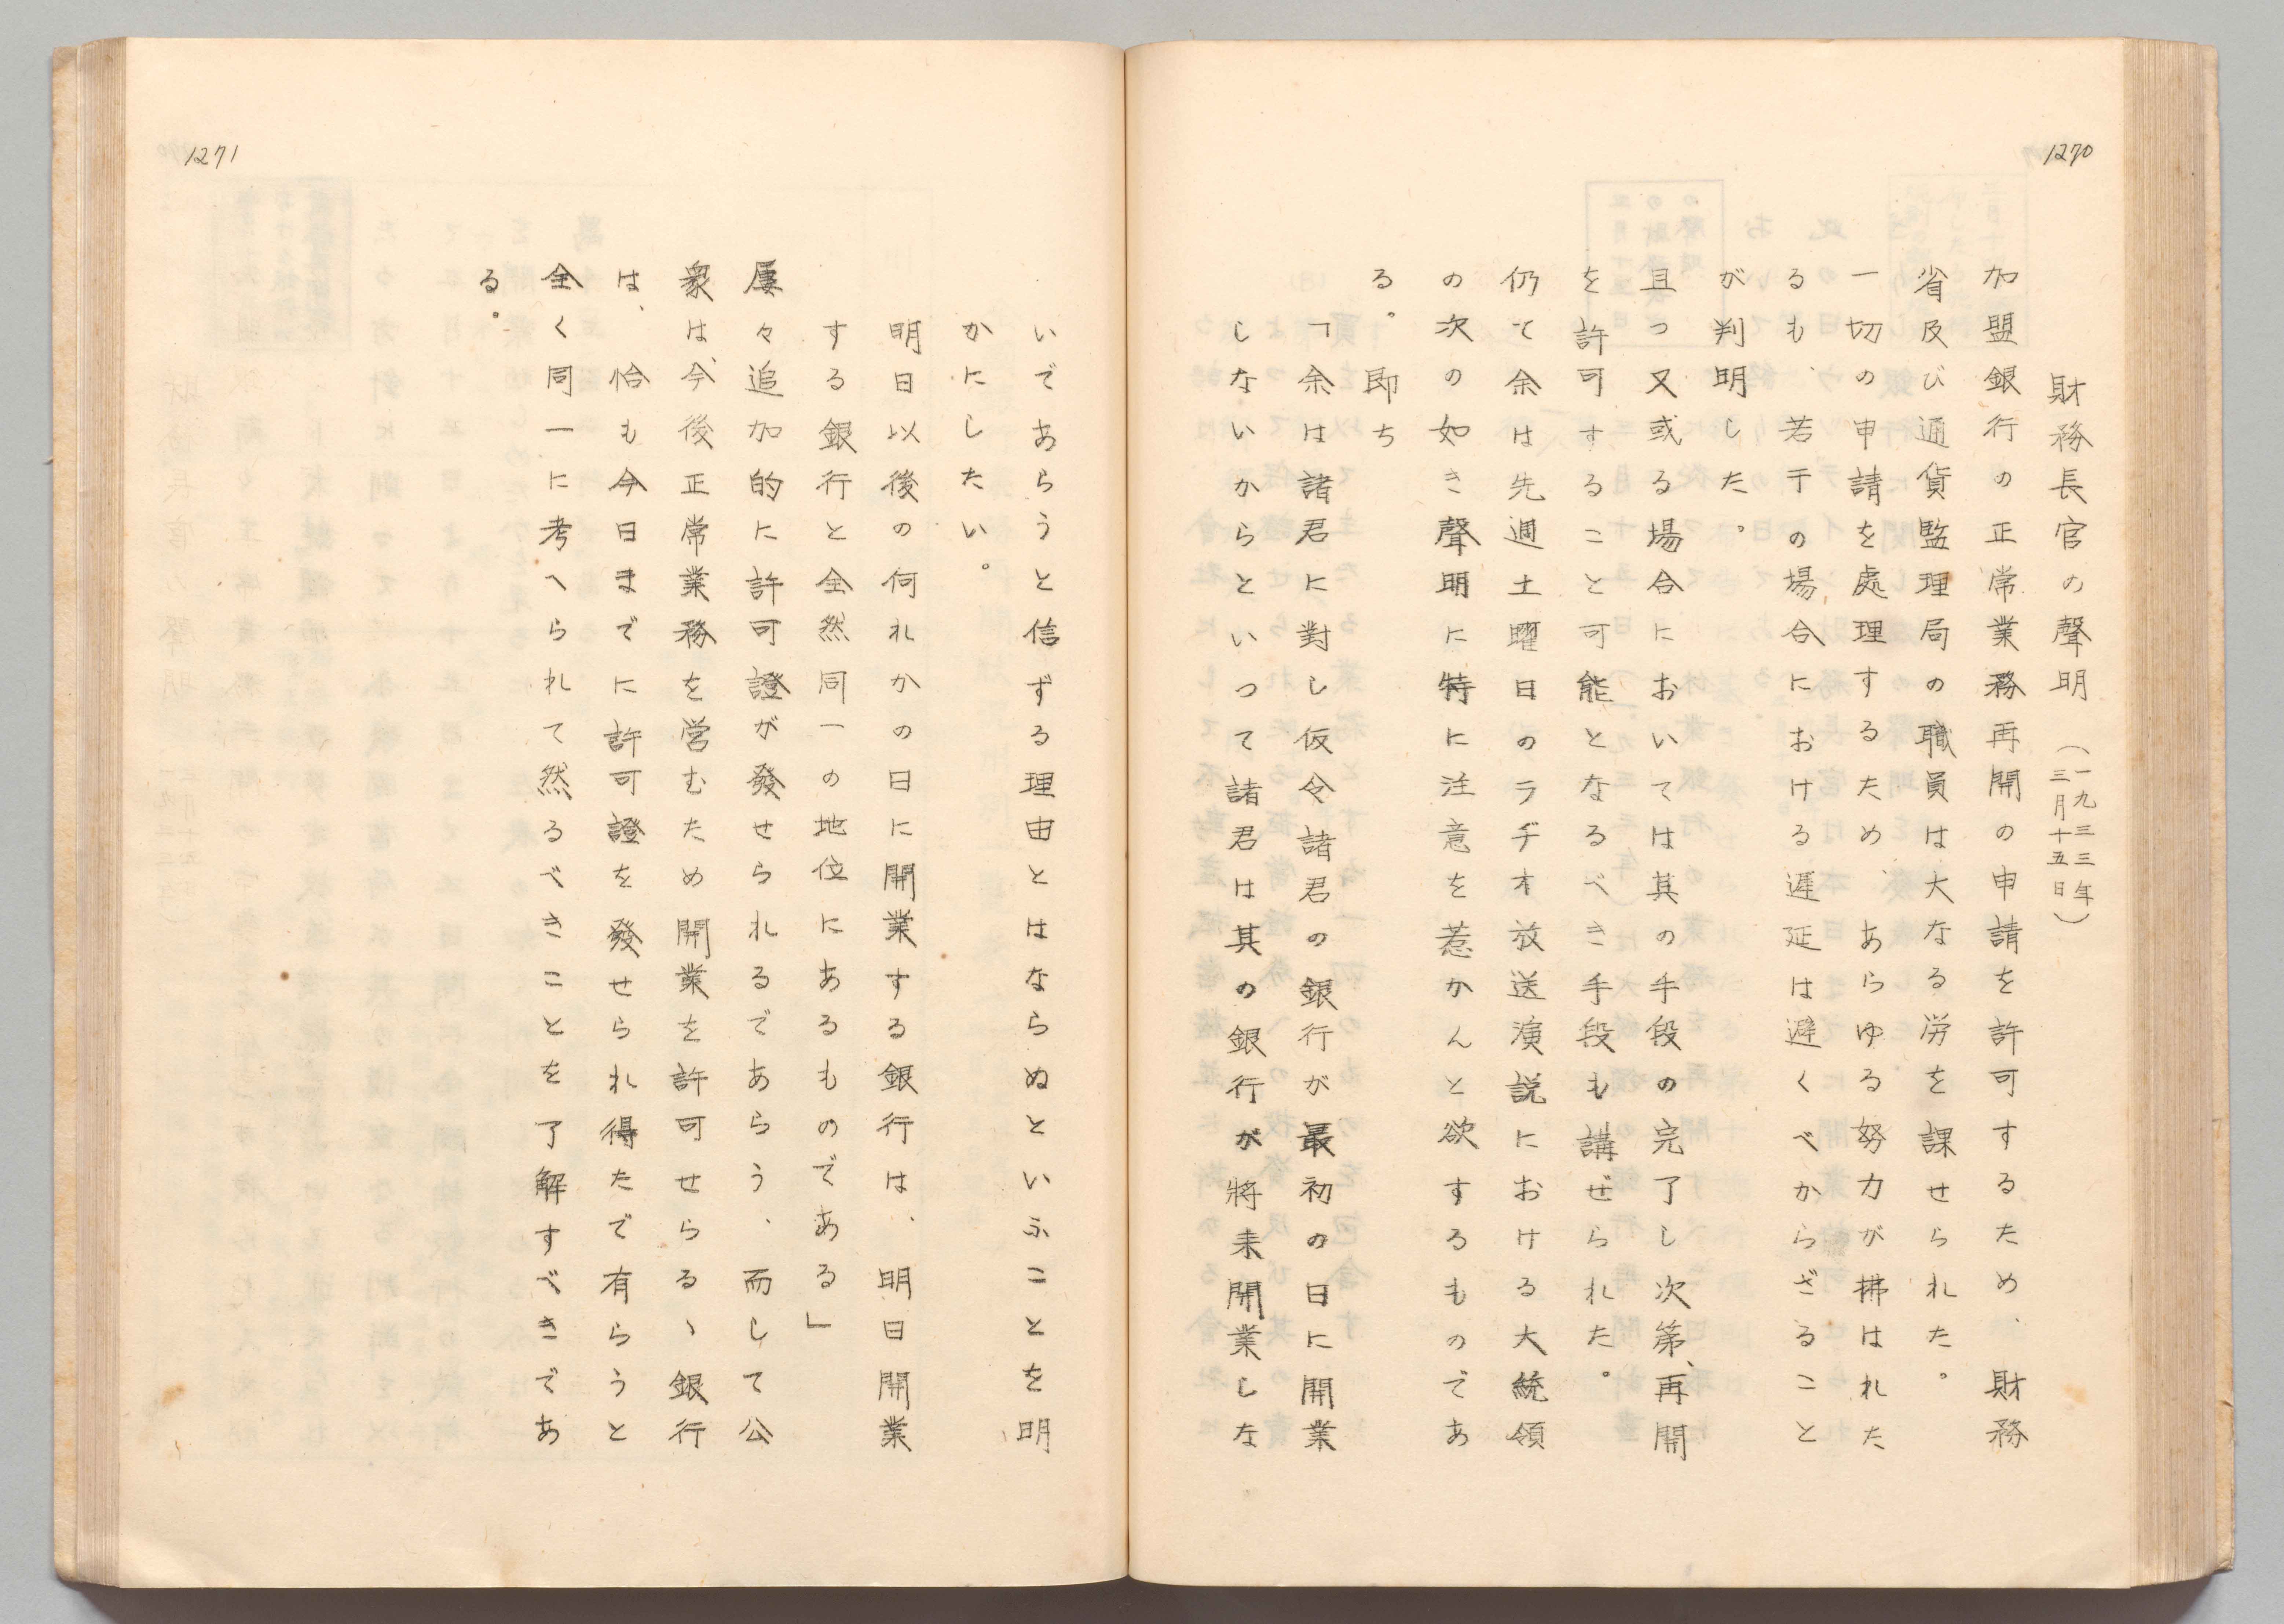 1270
財務長官の聲明（一九三三年三月十五日）
加盟銀行の正常業務再開の申請を許可するため、財務
省及び通貨監理局の職員は大なる労を課せられた。
一切の申請を處理するため、あらゆる努力が拂はれた
るも、若干の場合における遅延は避くべからざること
が判明した。
且つ又或る場合においては其の手段の完了し次第、再開
を許可すること可能となるべき手段も講ぜられた。
仍て余は先週土曜日のラヂオ放送演説における大統領
の次の如き聲明に特に注意を惹かんと欲するものであ
る。即ち
「余は諸君に對し仮令諸君の銀行が最初の日に開業
しないからといつて諸君は其の銀行が將来開業しな
1271
いであらうと信ずる理由とはならぬといふことを明
かにしたい。
明日以後の何れかの日に開業する銀行は、明日開業
する銀行と全然同一の地位にあるものである」
屡々追加的に許可證が發せられるであらう、而して公
衆は、今後正常業務を営むため開業を許可せらるゝ銀行
は、恰も今日までに許可證を發せられ得たで有らうと
全く同一に考へられて然るべきことを了解すべきであ
る。